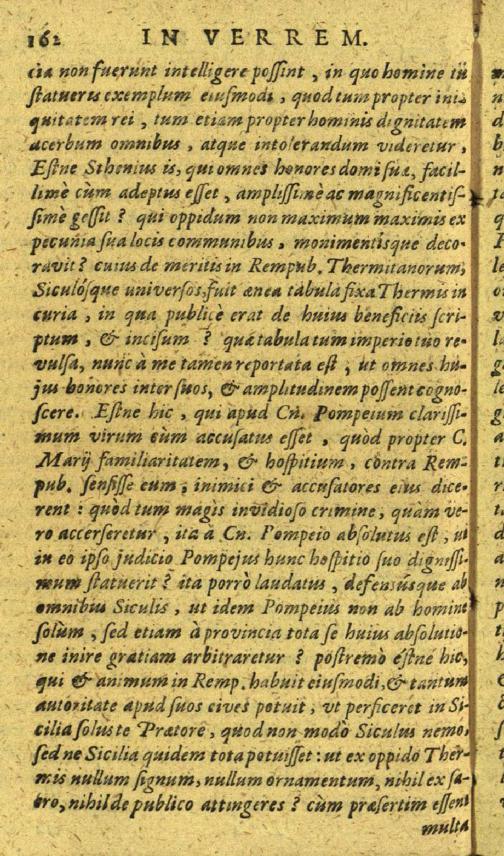 162 IN VERREM.
cia non fuerunt intelligere possint, in quo homine tũ
statueris exemplum eiusmodi, quod tum propter ini-
quitatem rei, tum etiam propter hominis dignitatem
acerbum omnibus, atque intolerandum videretur,
Estne Sthenius is, qui omnes honores domi suæ, facil-
limè cùm adeptus esset, amplissimè ac magnificentis-
simè gessit? qui oppidum non maximum maximis ex
pecunia sua locis communibus, monimentisque deco-
ravit? cuius de meritis in Rempub. Thermitanorum,
Siculosque universos, fuit ænea tabula fixa Thermis in
curia, in qua publicè erat de huius beneficiis scri-
ptum, & incisum? quæ tabula tum imperio tuo re-
vulsa, nunc à me tamen reportata est, ut omnes hu-
jus honores inter suos, & amplitudinem possent cogno-
scere. Estne hic, qui apud Cn. Pompeium clarissi-
mum virum cùm accusatus esset, quòd propter C.
Marij familiaritatem, & hospitium, contra Rem-
pub. sensisse eum, inimici & accusatores eius dice-
rent: quòd tum magis invidioso crimine, quàm ve-
ro accerseretur, ita à Cn. Pompeio absolutus est, ut
in eo ipso judicio Pompejus hunc hospitio suo dignissi-
mum statuerit? ita porrò laudatus, defensúsque ab
omnibus Siculis, ut idem Pompeius non ab homine
solùm, sed etiam à provincia tota se huius absolutio-
ne inire gratiam arbitraretur? postremò éstne hic,
qui & animum in Remp. habuit eiusmodi, & tantum
autoritate apud suos cives potuit, vt perficeret in Si-
cilia solus te Prætore, quod non modò Siculus nemo,
sed ne Sicilia quidem tota potuisset: ut ex oppido Ther-
mis nullum signum, nullum ornamentum, nihil ex sa-
cro, nihil de publico attingeres? cùm præsertim essent
multa